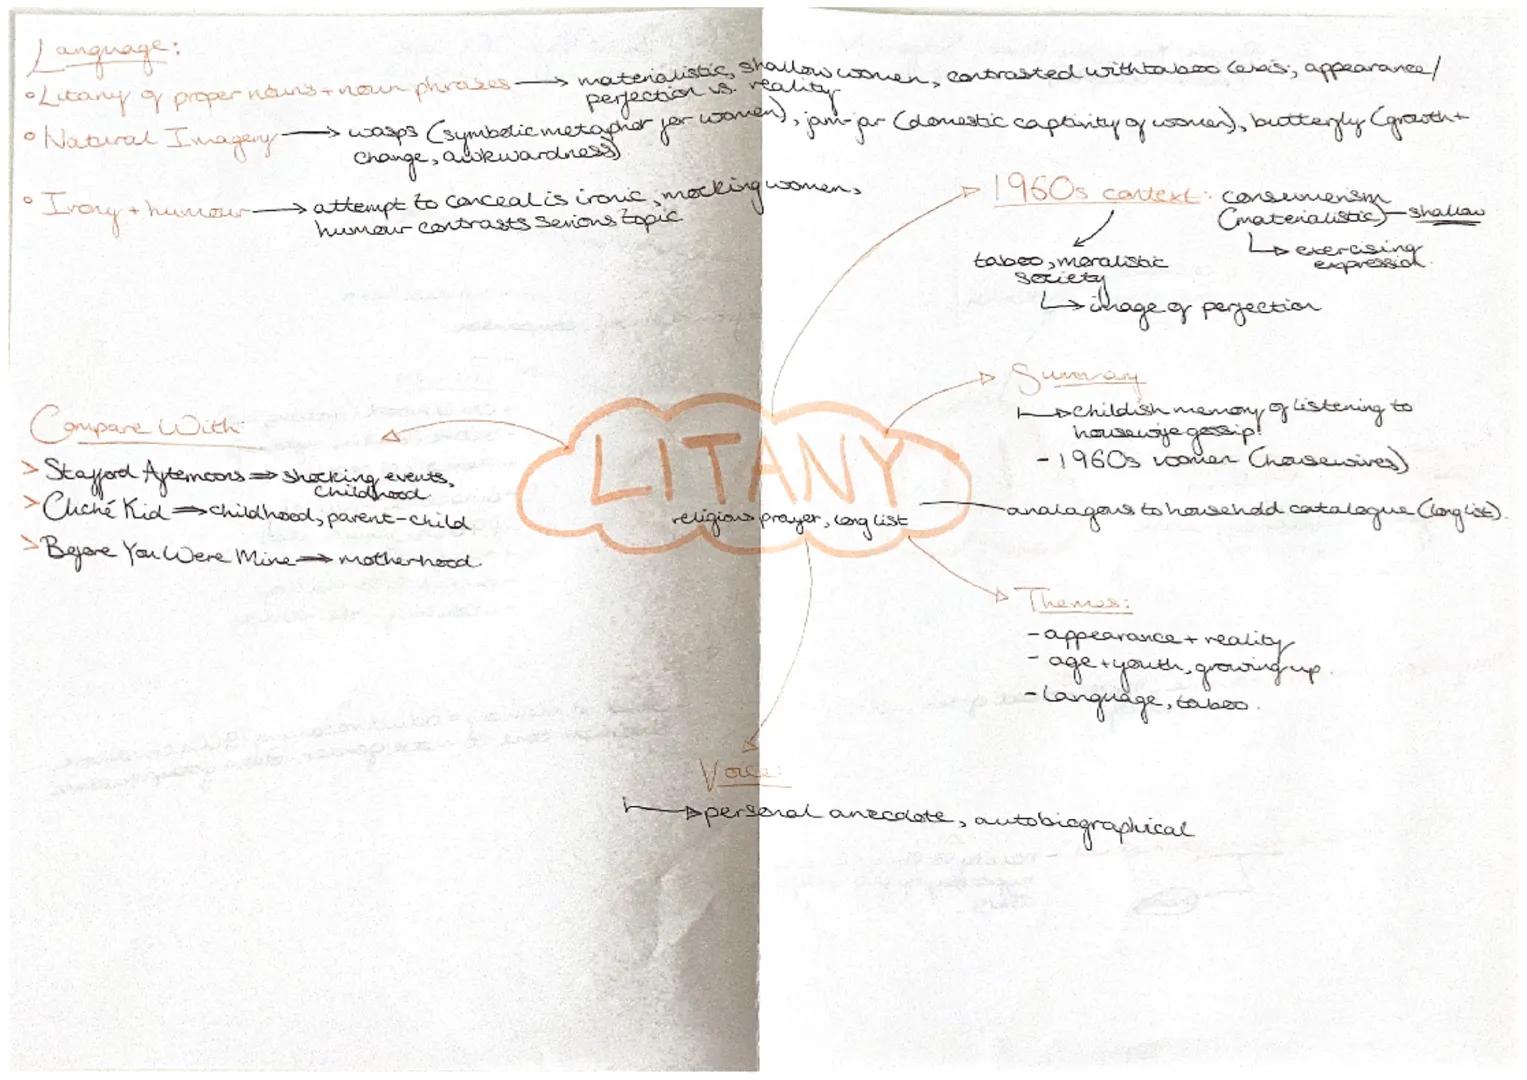 Language:
°Litany of proper nouns + noun phrases → materialistic, shallow women, contrasted with taboo lexis, appearance/
perfection vs. reality
°Natural Imagery → wasps (symbolic metaphor for women), jam-jar (domestic captivity of women), butterfly (growth +
change, awkwardness)
°Irony + humour → attempt to conceal is ironic, mocking women,
humour contrasts serious topic
1960s context: consumerism
(materialistic) - shallow
↳ exercising
expression.
taboo, moralistic
society
↳ image of perfection
Summary
↳ childish memory of listening to
housewife gossip.
- 1960s women (housewives)
Compare With
> Stafford Afternoons ⇒ shocking events,
childhood.
> Cliché Kid ⇒ childhood, parent-child
> Before You Were Mine ⇒ motherhood.
LITANY
religious prayer, long list
analagous to household catalogue (long list).
Themes:
- appearance + reality
- age + youth, growing up.
- language, taboo.
Voice
↳ personal anecdote, autobiographical